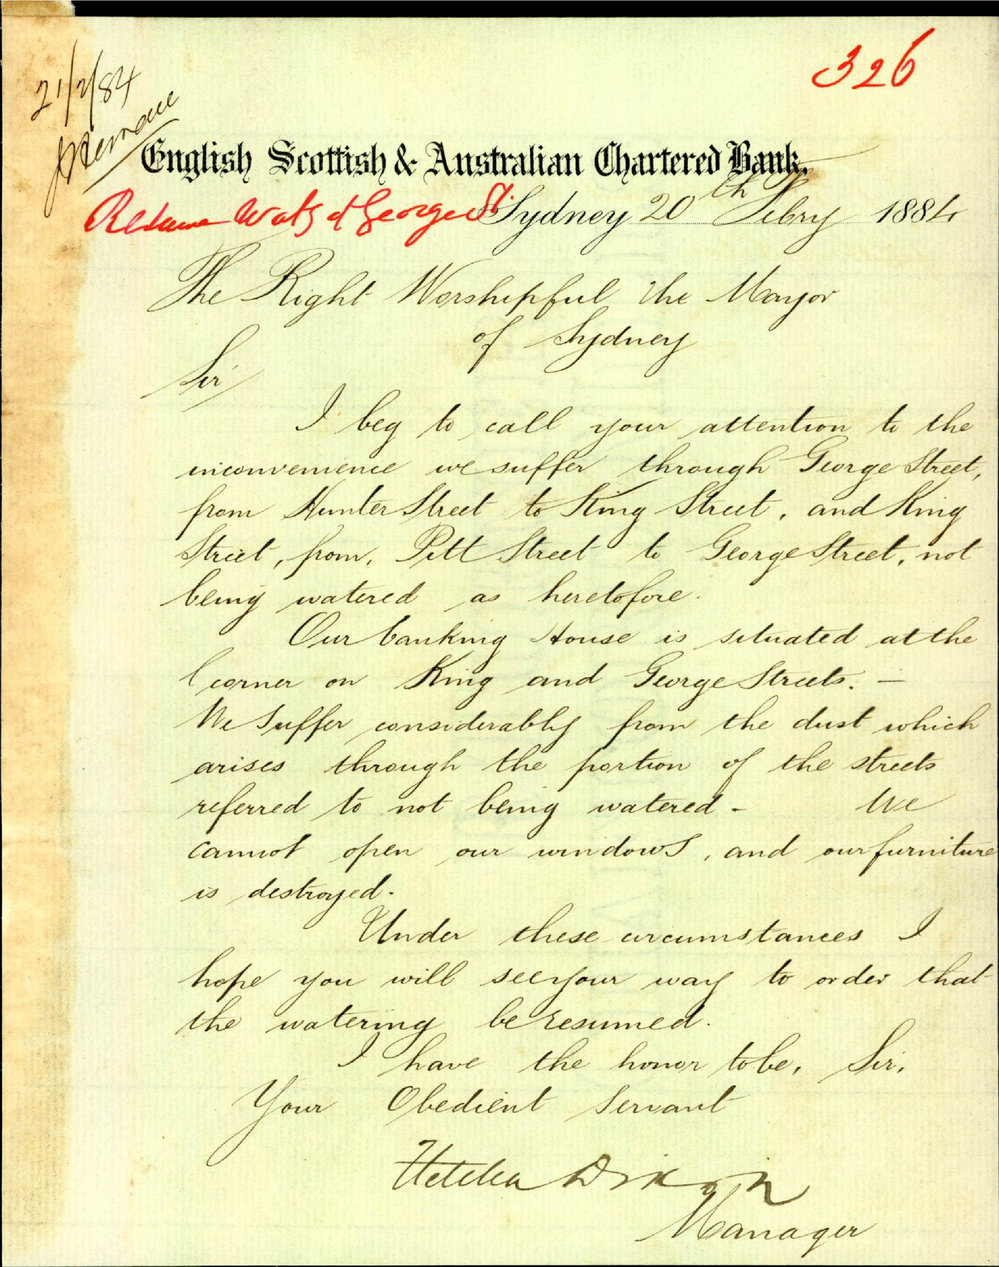 326
21/2/84
English Scottish & Australian Chartered Bank.
Watg of George St
Sydney 20th Febry 1884
The Right Worshipful the Mayor
of Sydney
Sir
I beg to call your attention to the
inconvenience we suffer through George Street,
from Hunter Street to King Street, and King
Street, from, Pitt Street to George Street, not
being watered as heretofore.
Our banking House is situated at the
Corner on King and George Streets. —
We suffer considerably from the dust which
arises through the portion of the streets
referred to not being watered - We
cannot open our windows, and our furniture
is destroyed.
Under these circumstances I
hope you will see your way to order that
the watering be resumed.
I have the honor to be, Sir,
Your Obedient Servant
Dixon
Manager